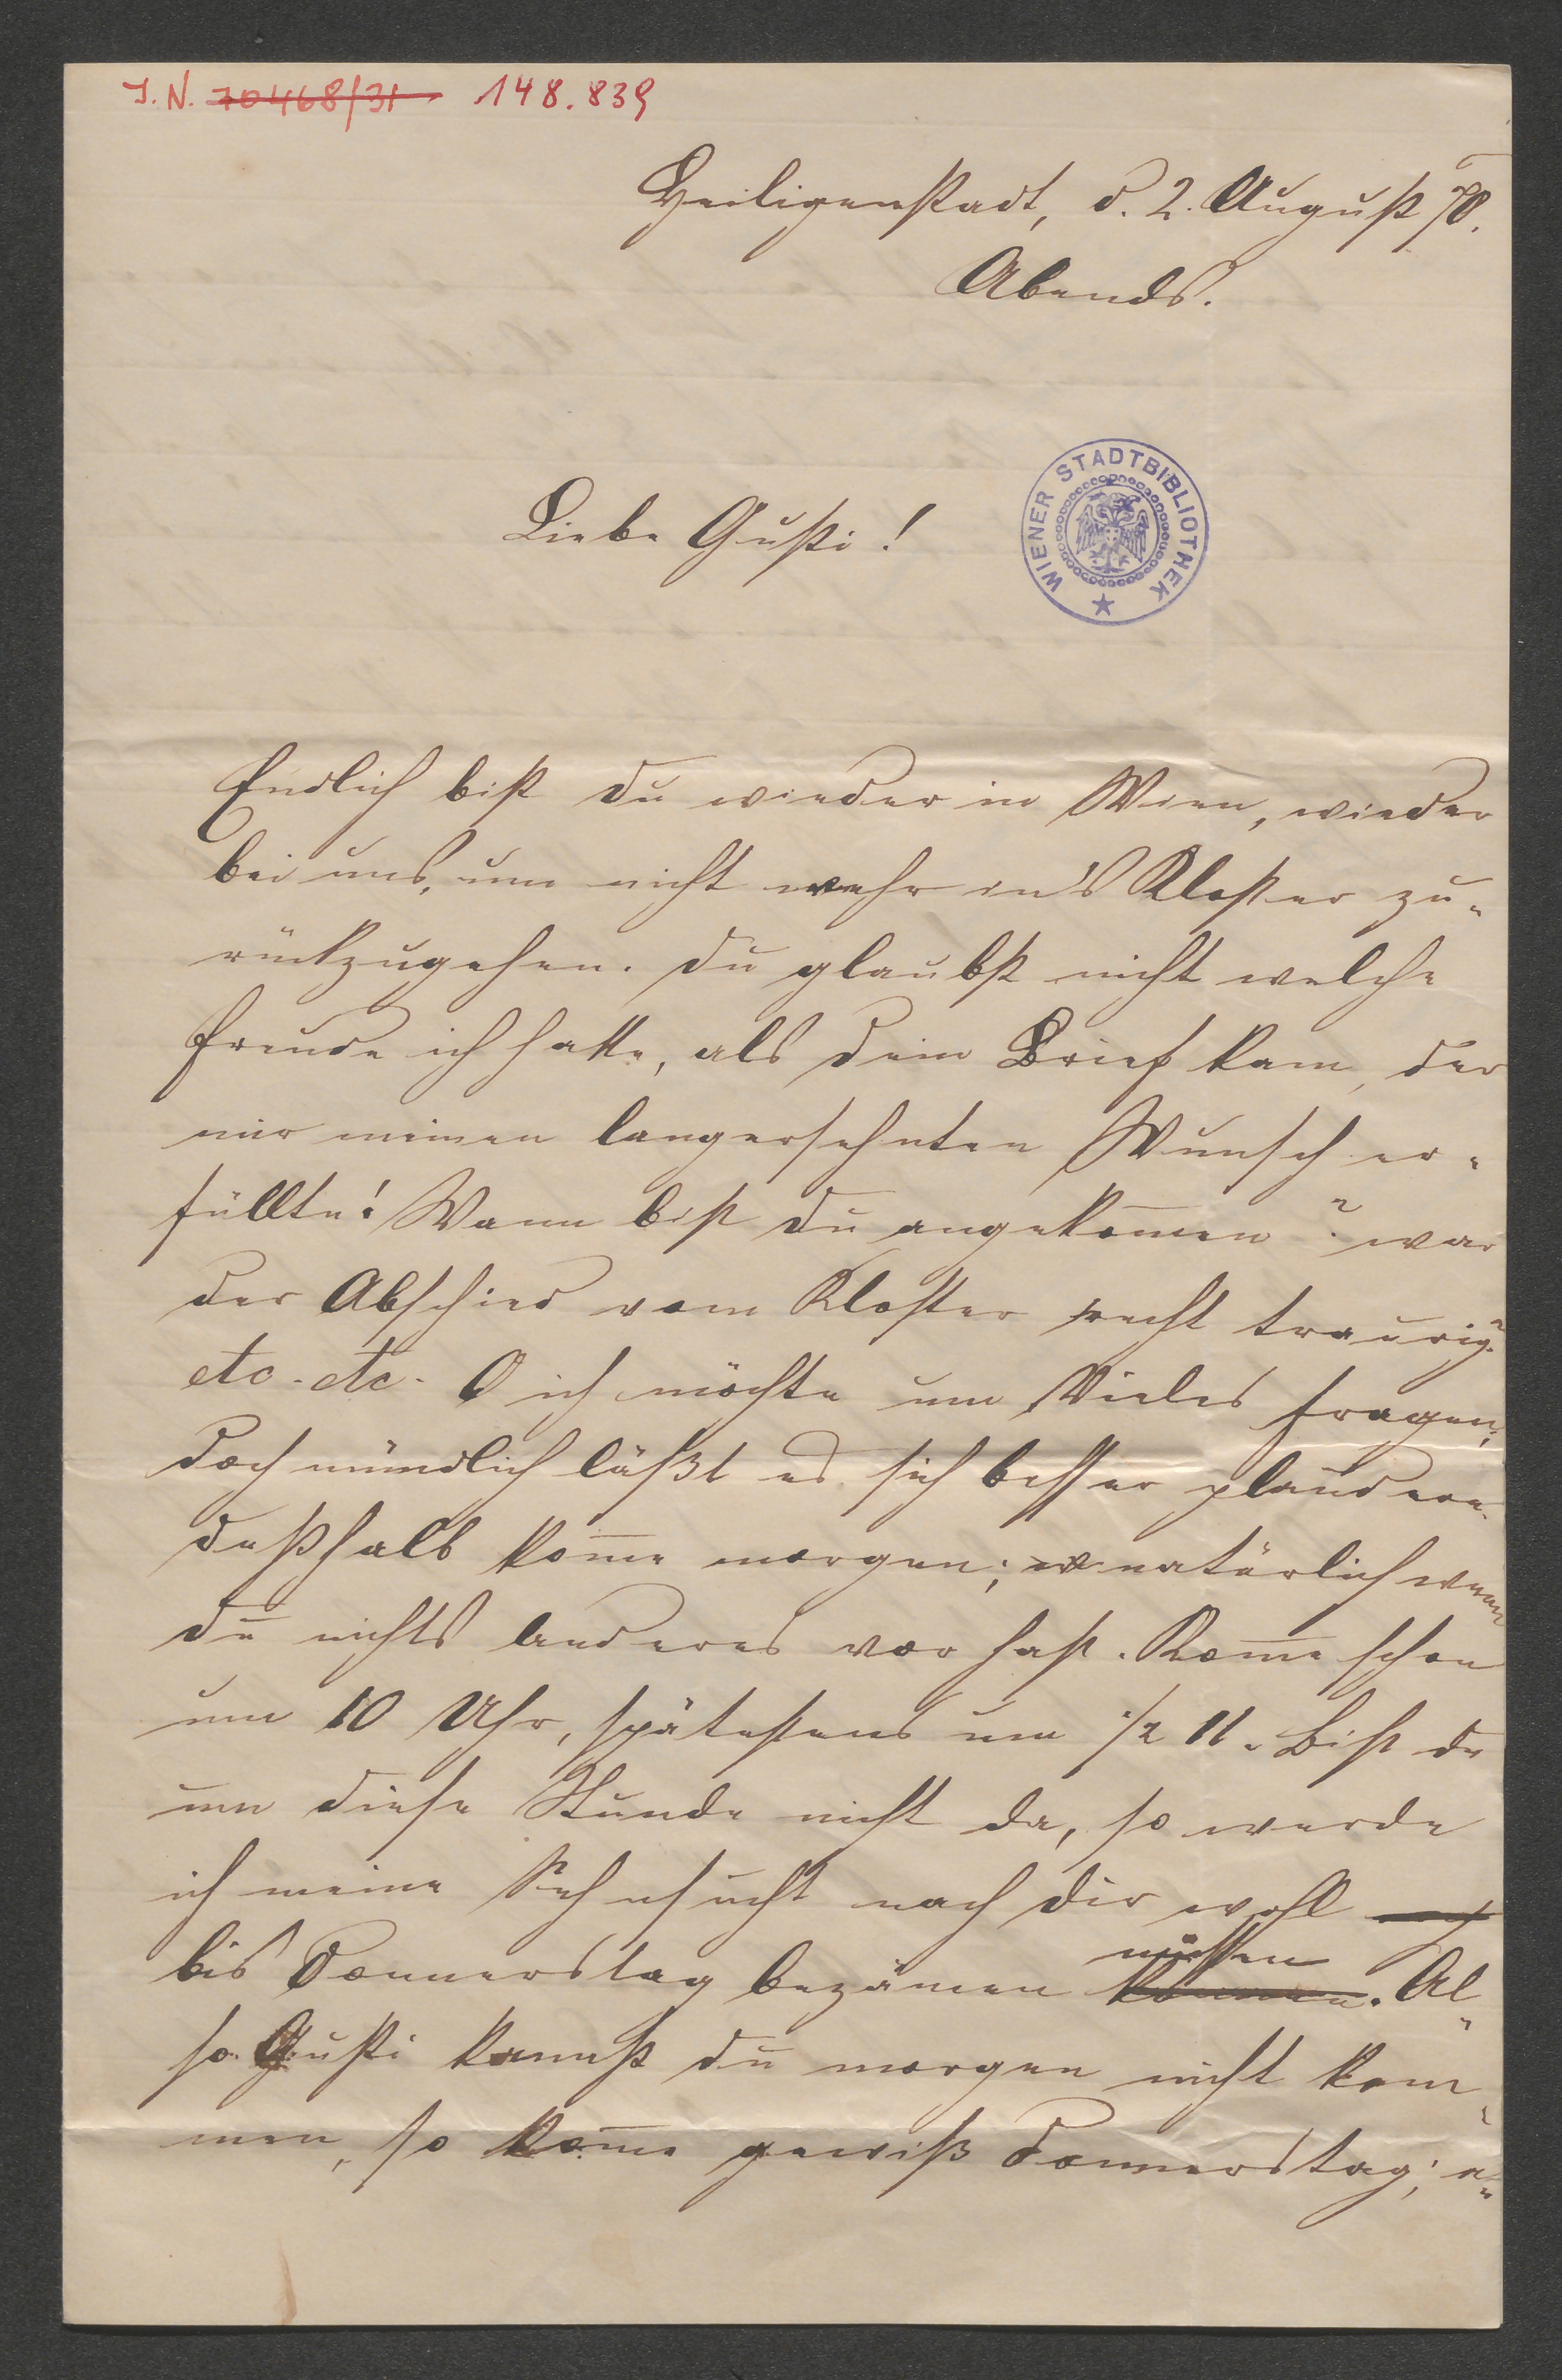 J. N. 70468/31 148.839
Heiligenstadt, d. 2. August 70.
Abends.
Liebe Gusti!
WIENER STADTBIBLIOTHEK
Endlich bist du wieder in Wien, wieder
bei uns, um nicht mehr in's Kloster zu-
rückzugehen. Du glaubst nicht welche
Freude ich hatte, als dein Brief kam, der
mir meinen langersehnten Wunsch er-
füllte! Wann bist du angekom̅en? war
der Abschied vom Kloster recht traurig?
etc. etc. O ich möchte um Vieles fragen,
doch mündlich läßt es sich besser plaudern.
deßhalb kom̅e morgen; natürlich wenn
du nichts Anderes vor hast. Kom̅e schon
um 10 Uhr, spätestens um 1/2 11. Bist du
um diese Stunde nicht da, so werde
ich meine Sehnsucht nach dir wohl
bis Donnerstag bezämen können müssen. Al-
so Gusti kannst du morgen nicht kom-
men, so kom̅e gewiß Donnerstag; a-